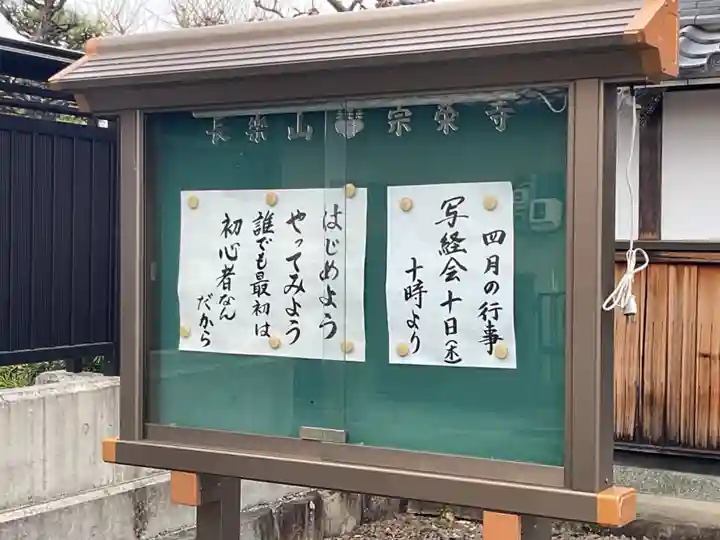 長楽山 宗栄寺
四月の行事
写経会十日(木)
十時より
はじめよう
やってみよう
誰でも最初は
初心者なん
だから